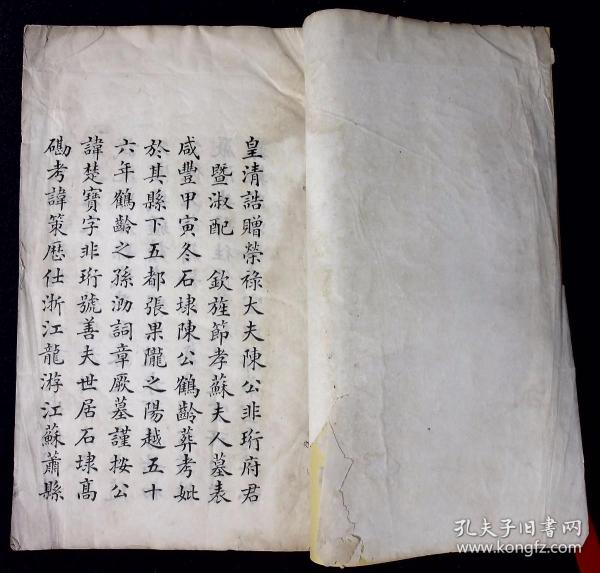 皇清誥贈榮祿大夫陳公非珩府君
暨淑配 欽旌節孝蘇夫人墓表
咸豐甲寅冬石埭陳公鶴齡葬考妣
於其縣下五都張果隴之陽越五十
六年鶴齡之孫泐詞章厥墓謹按公
諱楚寶字非珩號善夫世居石埭高
碻考諱策歷仕浙江龍游江蘇蕭縣
孔夫子旧书网
www.kongfz.com